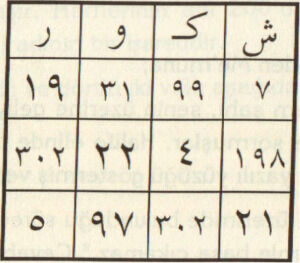 ش ك و ر
٧ ٩٩ ٣٠ ١٩
١٩٨ ٤ ٢٢ ٣٠٢
٢ ٣٠٢ ٩٧ ٥